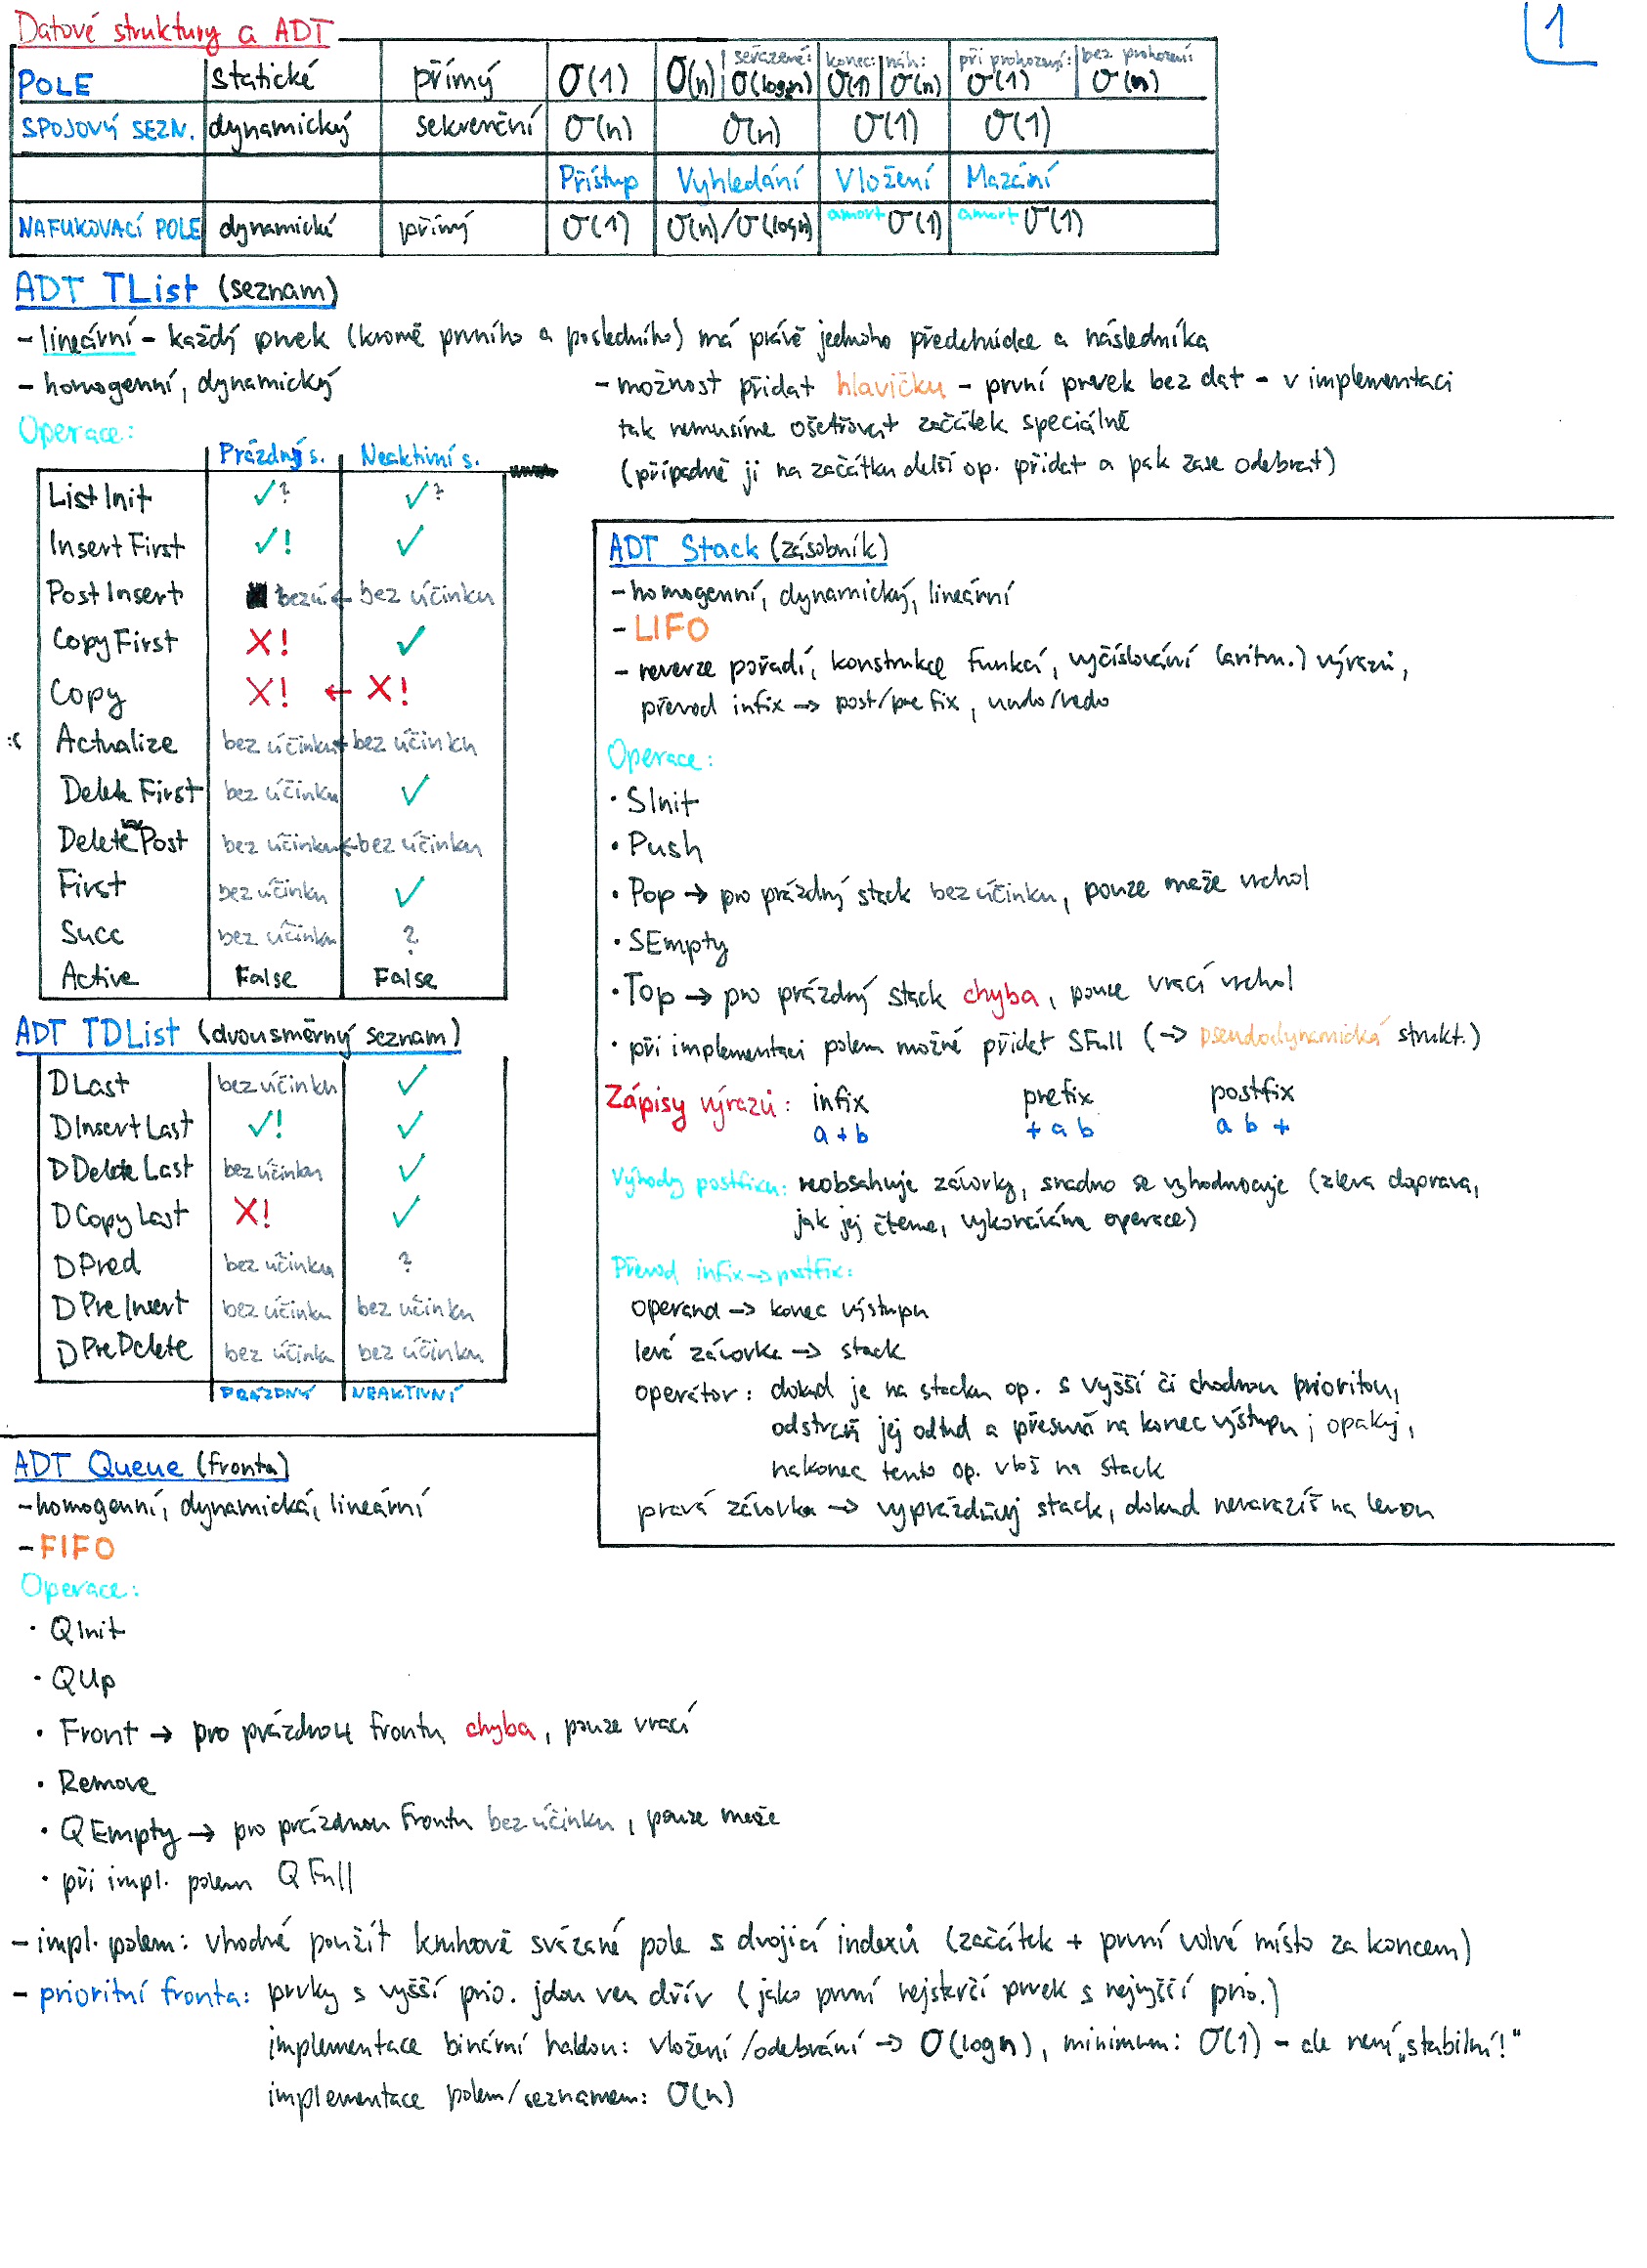 Datové struktury a ADT
1
POLE statické přímý O(1) O(n) seřazené: O(logn) konec: O(1) náh: O(n) při prohození: O(1) bez prohození O(n)
SPOJOVÝ SEZN. dynamický sekvenční O(n) O(n) O(1) O(1)
Přístup Vyhledání Vložení Mazání
NAFUKOVACÍ POLE dynamické přímý O(1) O(n)/O(logn) amort O(1) amort O(1)
ADT TList (seznam)
- lineární - každý prvek (kromě prvního a posledního) má právě jednoho předchůdce a následníka
- homogenní, dynamický
- možnost přidat hlavičku - první prvek bez dat - v implementaci
tak nemusíme ošetřovat začátek speciálně
(případně ji na začátku delší op. přidat a pak zase odebrat)
Operace:
Prázdný s. Neaktivní s.
ListInit ✓? ✓?
InsertFirst ✓! ✓
PostInsert bezú ← bez účinku
CopyFirst X! ✓
Copy X! ← X!
:( Actualize bez účinku ← bez účinku
DeleteFirst bez účinku ✓
DeletePost bez účinku ← bez účinku
First bez účinku ✓
Succ bez účinku ?
Active False False
ADT TDList (dvousměrný seznam)
DLast bez účinku ✓
DInsertLast ✓! ✓
DDeleteLast bez účinku ✓
DCopyLast X! ✓
DPred bez účinku ?
DPreInsert bez účinku bez účinku
DPreDelete bez účinku bez účinku
PRÁZDNÝ NEAKTIVNÍ
ADT Stack (zásobník)
- homogenní, dynamický, lineární
- LIFO
- reverze pořadí, konstrukce funkcí, vyčíslování (aritm.) výrazů,
převod infix → post/prefix, undo/redo
Operace:
• SInit
• Push
• Pop → pro prázdný stack bez účinku, pouze maže vrchol
• SEmpty
• Top → pro prázdný stack chyba, pouze vrací vrchol
• při implementaci polem možné přidat SFull (→ pseudodynamická strukt.)
Zápisy výrazů: infix prefix postfix
a + b + a b a b +
Výhody postfixu: neobsahuje závorky, snadno se vyhodnocuje (zleva doprava,
jak jej čteme, vykonáváme operace)
Převod infix → postfix:
operand → konec výstupu
levá závorka → stack
operátor: dokud je na stacku op. s vyšší či shodnou prioritou,
odstraň jej odtud a přesuň na konec výstupu; opakuj,
nakonec tento op. vlož na stack
pravá závorka → vyprázdňuj stack, dokud nenarazíš na levou
ADT Queue (fronta)
- homogenní, dynamická, lineární
- FIFO
Operace:
• QInit
• QUp
• Front → pro prázdnou frontu chyba, pouze vrací
• Remove
• QEmpty → pro prázdnou frontu bez účinku, pouze maže
• při impl. polem QFull
- impl. polem: vhodné použít kruhově svázané pole s dvojicí indexů (začátek + první volné místo za koncem)
- prioritní fronta: prvky s vyšší prio. jdou ven dřív (jako první nejstarší prvek s nejvyšší prio.)
implementace binární haldou: vložení/odebrání → O(logn), minimum: O(1) - ale není „stabilní!"
implementace polem/seznamem: O(n)